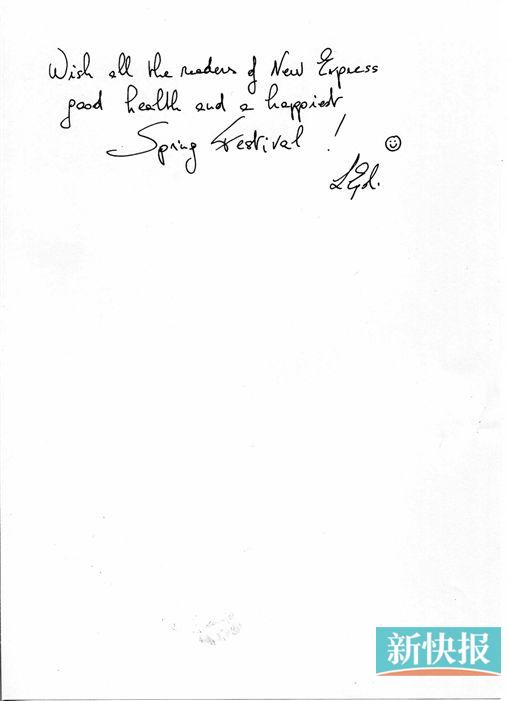 Wish all the readers of New Express
good health and a happiest
Spring Festival !
新快报